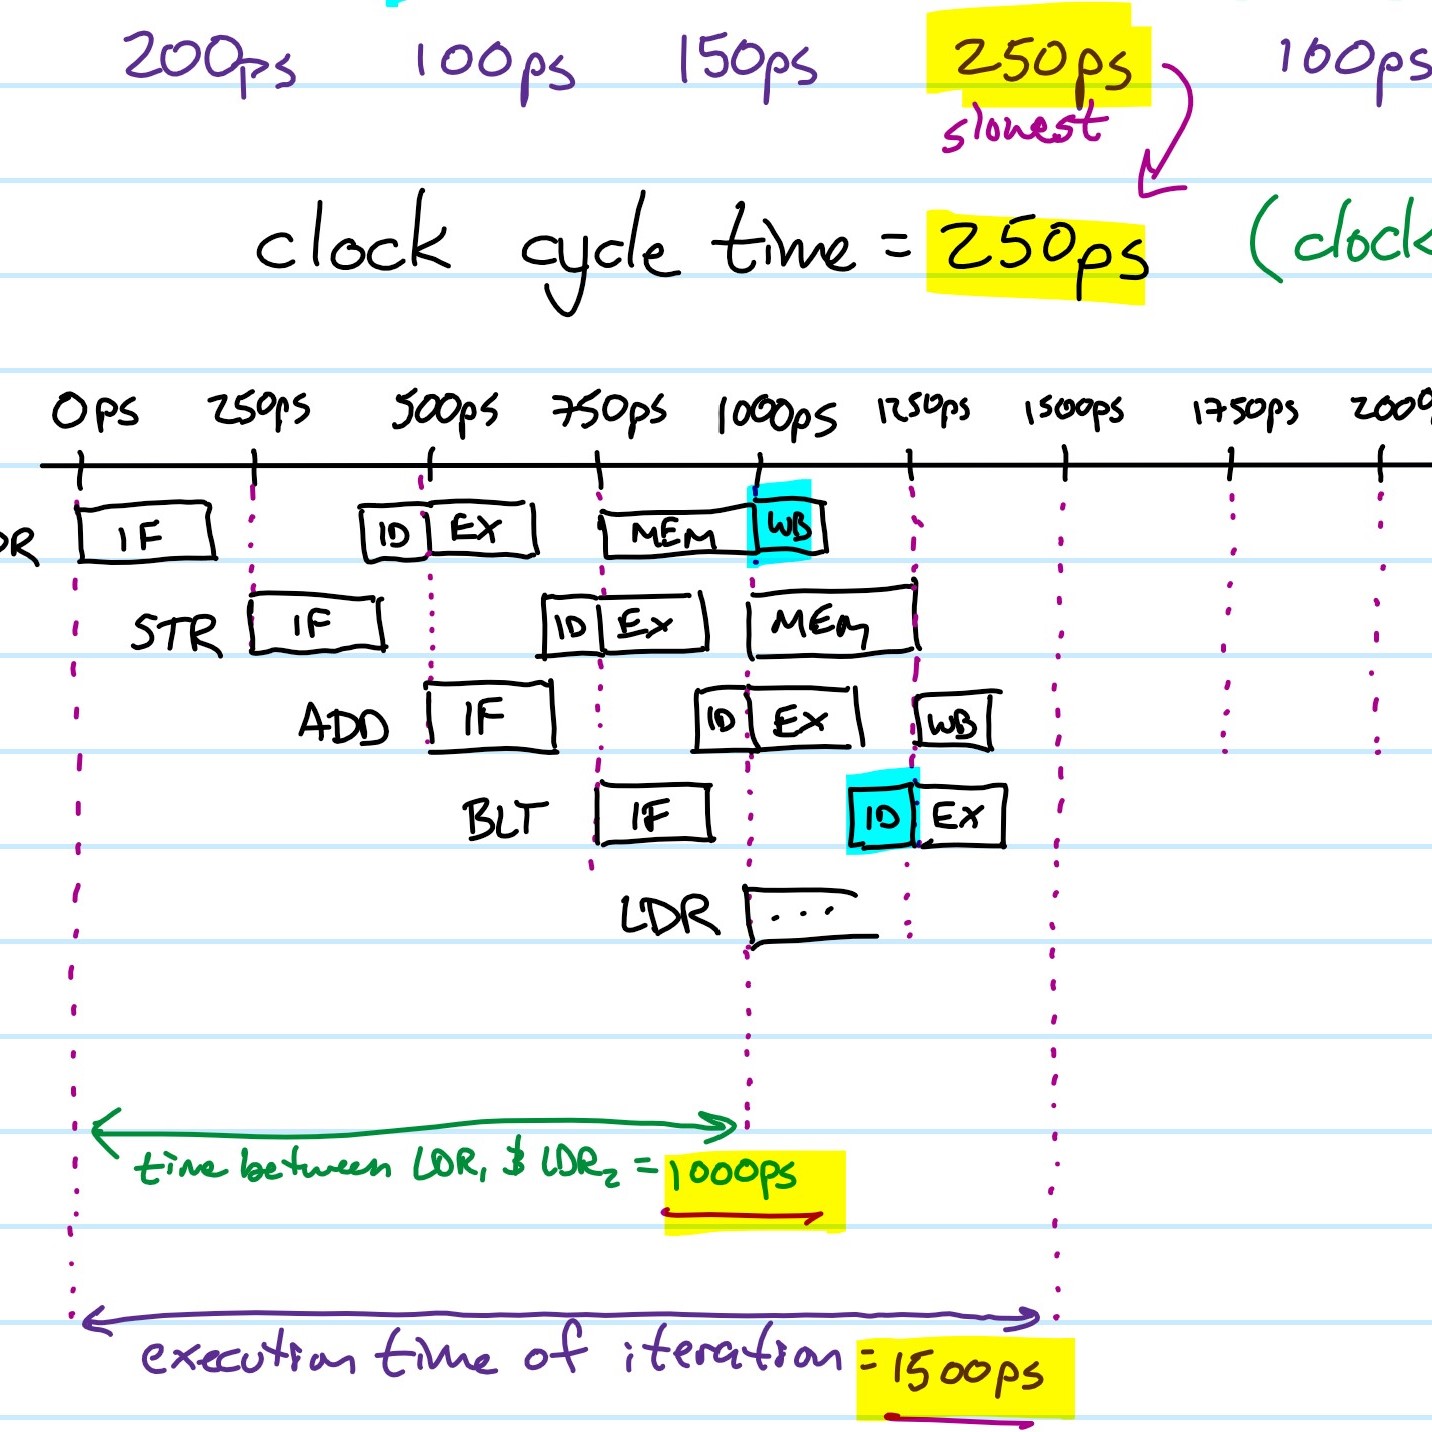 200ps 100ps 150ps 250ps 100ps
slowest
clock cycle time = 250ps (clock
0ps 250ps 500ps 750ps 1000ps 1250ps 1500ps 1750ps 2000
DR IF ID EX MEM WB
STR IF ID EX MEM
ADD IF ID EX WB
BLT IF ID EX
LDR ...
time between LDR₁ & LDR₂ = 1000ps
execution time of iteration = 1500ps